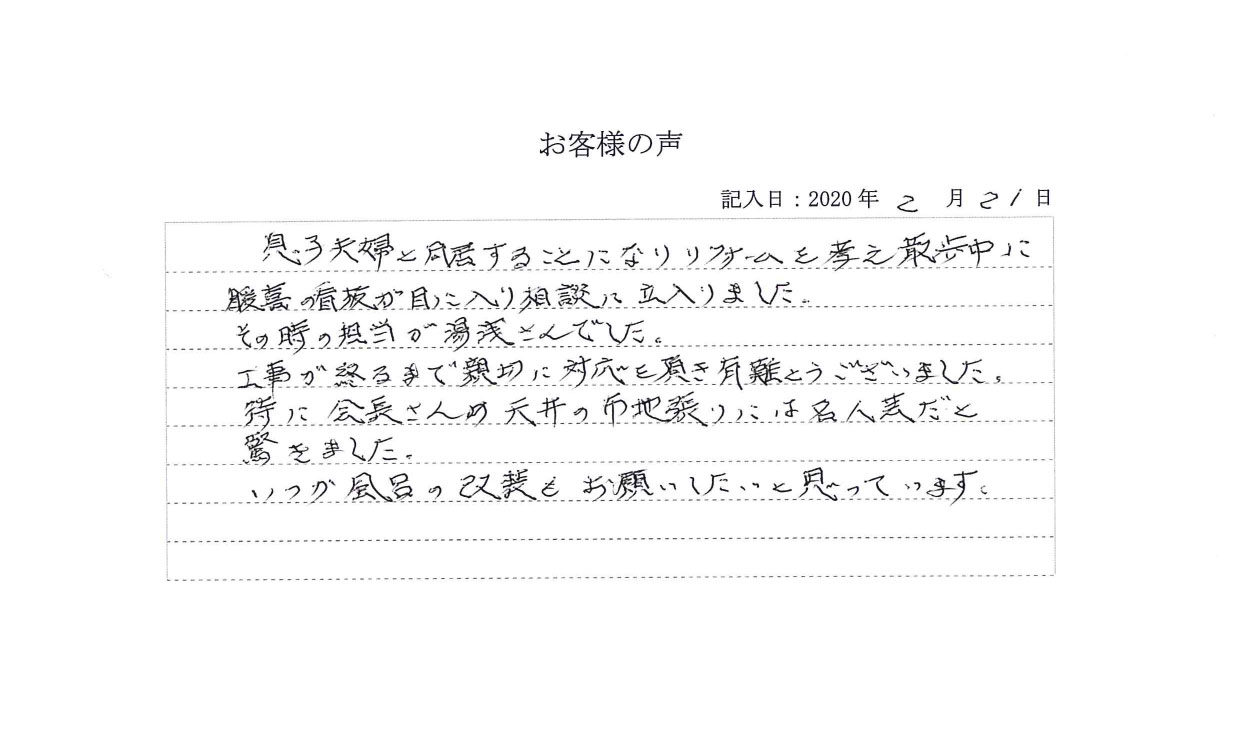 お客様の声
記入日：2020年 2 月 21 日
息子夫婦と同居することになりリフォームを考え散歩中に
暖喜の看板が目に入り相談に立入りました。
その時の担当が湯浅さんでした。
工事が終るまで親切に対応を頂き有難とうございました。
特に会長さんの天井の布地張りには名人芸だと
驚きました。
いつか風呂の改装もお願いしたいと思っています。